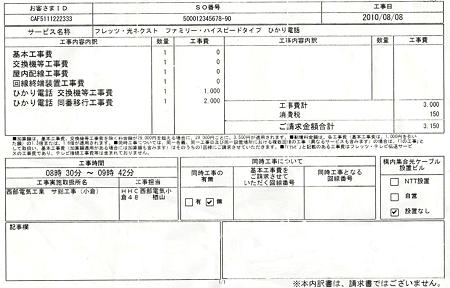 お客さまID SO番号 工事日
CAF5111222333 500012345678-90 2010/08/08
サービス名称 フレッツ・光ネクスト ファミリー・ハイスピードタイプ ひかり電話
工事内容内訳 数量 工事費 工事内容内訳 数量 工事費
基本工事費 1 0
交換機等工事費 1 0
屋内配線工事費 1 0
回線終端装置工事費 1 0
ひかり電話 交換機等工事費 1 1,000
ひかり電話 同番移行工事費 1 2,000
工事費計 3,000
消費税 150
ご請求金額合計 3,150
工事時間 同時工事について 構内集合光ケーブル
設置ビル
08時 30分 ～ 09時 42分
同時工事の
有無
基本工事費を
ご請求させて
いただく回線番号
同時工事となる
回線番号
工事実施取扱所名 工事担当
西部電気工業 サ総工事(小倉) HHC西部電気小
倉48 楢山
有 無
NTT設置
自営
設置なし
記事欄
1/1
※本内訳書は、請求書ではございません。